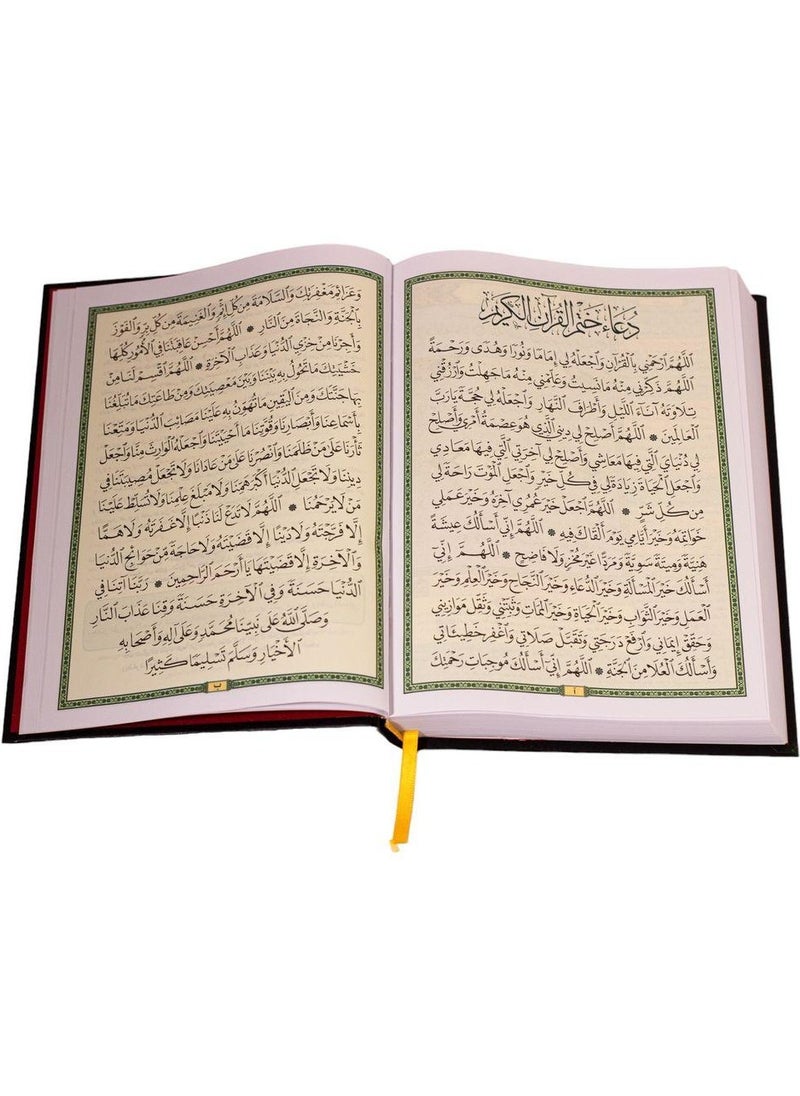 دُعَاءُ خَتْمِ القُرْآنِ الكَرِيْمِ
اللَّهُمَّ ارْحَمْنِي بِالْقُرْآنِ وَاجْعَلْهُ لِي إِمَامًا وَنُورًا وَهُدًى وَرَحْمَةً
اللَّهُمَّ ذَكِّرْنِي مِنْهُ مَا نُسِّيتُ وَعَلِّمْنِي مِنْهُ مَا جَهِلْتُ وَارْزُقْنِي
تِلَاوَتَهُ آنَاءَ اللَّيْلِ وَأَطْرَافَ النَّهَارِ وَاجْعَلْهُ لِي حُجَّةً يَارَبَّ
العَالَمِينَ * اللَّهُمَّ أَصْلِحْ لِي دِينِي الَّذِي هُوَ عِصْمَةُ أَمْرِي وَأَصْلِحْ
لِي دُنْيَايَ الَّتِي فِيهَا مَعَاشِي وَأَصْلِحْ لِي آخِرَتِي الَّتِي فِيهَا مَعَادِي
وَاجْعَلِ الْحَيَاةَ زِيَادَةً لِي فِي كُلِّ خَيْرٍ وَاجْعَلِ الْمَوْتَ رَاحَةً لِي
مِن كُلِّ شَرٍّ * اللَّهُمَّ اجْعَلْ خَيْرَ عُمْرِي آخِرَهُ وَخَيْرَ عَمَلِي
خَوَاتِمَهُ وَخَيْرَ أَيَّامِي يَوْمَ أَلْقَاكَ فِيهِ * اللَّهُمَّ إِنِّي أَسْأَلُكَ عِيشَةً
هَنِيَّةً وَمِيتَةً سَوِيَّةً وَمَرَدًّا غَيْرَ مُخْزٍ وَلَا فَاضِحٍ * اللَّهُمَّ إِنِّي
أَسْأَلُكَ خَيْرَ الْمَسْأَلَةِ وَخَيْرَ الدُّعَاءِ وَخَيْرَ النَّجَاحِ وَخَيْرَ الْعِلْمِ وَخَيْرَ
الْعَمَلِ وَخَيْرَ الثَّوَابِ وَخَيْرَ الْحَيَاةِ وَخَيْرَ الْمَمَاتِ وَثَبِّتْنِي وَثَقِّلْ مَوَازِينِي
وَحَقِّقْ إِيمَانِي وَارْفَعْ دَرَجَتِي وَتَقَبَّلْ صَلَاتِي وَاغْفِرْ خَطِيئَاتِي
وَأَسْأَلُكَ الْعُلَا مِنَ الْجَنَّةِ * اللَّهُمَّ إِنِّي أَسْأَلُكَ مُوجِبَاتِ رَحْمَتِكَ
أ
وَعَزَائِمَ مَغْفِرَتِكَ وَالسَّلَامَةَ مِن كُلِّ إِثْمٍ وَالْغَنِيمَةَ مِن كُلِّ بِرٍّ وَالْفَوْزَ
بِالْجَنَّةِ وَالنَّجَاةَ مِنَ النَّارِ * اللَّهُمَّ أَحْسِنْ عَاقِبَتَنَا فِي الْأُمُورِ كُلِّهَا
وَأَجِرْنَا مِنْ خِزْيِ الدُّنْيَا وَعَذَابِ الْآخِرَةِ * اللَّهُمَّ اقْسِمْ لَنَا مِنْ
خَشْيَتِكَ مَا تَحُولُ بِهِ بَيْنَنَا وَبَيْنَ مَعْصِيَتِكَ وَمِنْ طَاعَتِكَ مَا تُبَلِّغُنَا
بِهَا جَنَّتَكَ وَمِنَ الْيَقِينِ مَا تُهَوِّنُ بِهِ عَلَيْنَا مَصَائِبَ الدُّنْيَا وَمَتِّعْنَا
بِأَسْمَاعِنَا وَأَبْصَارِنَا وَقُوَّتِنَا مَا أَحْيَيْتَنَا وَاجْعَلْهُ الْوَارِثَ مِنَّا وَاجْعَلْ
ثَأْرَنَا عَلَى مَنْ ظَلَمَنَا وَانْصُرْنَا عَلَى مَنْ عَادَانَا وَلَا تَجْعَلْ مُصِيبَتَنَا فِي
دِينِنَا وَلَا تَجْعَلِ الدُّنْيَا أَكْبَرَ هَمِّنَا وَلَا مَبْلَغَ عِلْمِنَا وَلَا تُسَلِّطْ عَلَيْنَا
مَنْ لَا يَرْحَمُنَا * اللَّهُمَّ لَا تَدَعْ لَنَا ذَنْبًا إِلَّا غَفَرْتَهُ وَلَا هَمًّا
إِلَّا فَرَّجْتَهُ وَلَا دَيْنًا إِلَّا قَضَيْتَهُ وَلَا حَاجَةً مِنْ حَوَائِجِ الدُّنْيَا
وَالْآخِرَةِ إِلَّا قَضَيْتَهَا يَا أَرْحَمَ الرَّاحِمِينَ * رَبَّنَا آتِنَا فِي
الدُّنْيَا حَسَنَةً وَفِي الْآخِرَةِ حَسَنَةً وَقِنَا عَذَابَ النَّارِ
وَصَلَّى اللَّهُ عَلَى نَبِيِّنَا مُحَمَّدٍ وَعَلَى آلِهِ وَأَصْحَابِهِ
الْأَخْيَارِ وَسَلَّمَ تَسْلِيمًا كَثِيرًا
ب